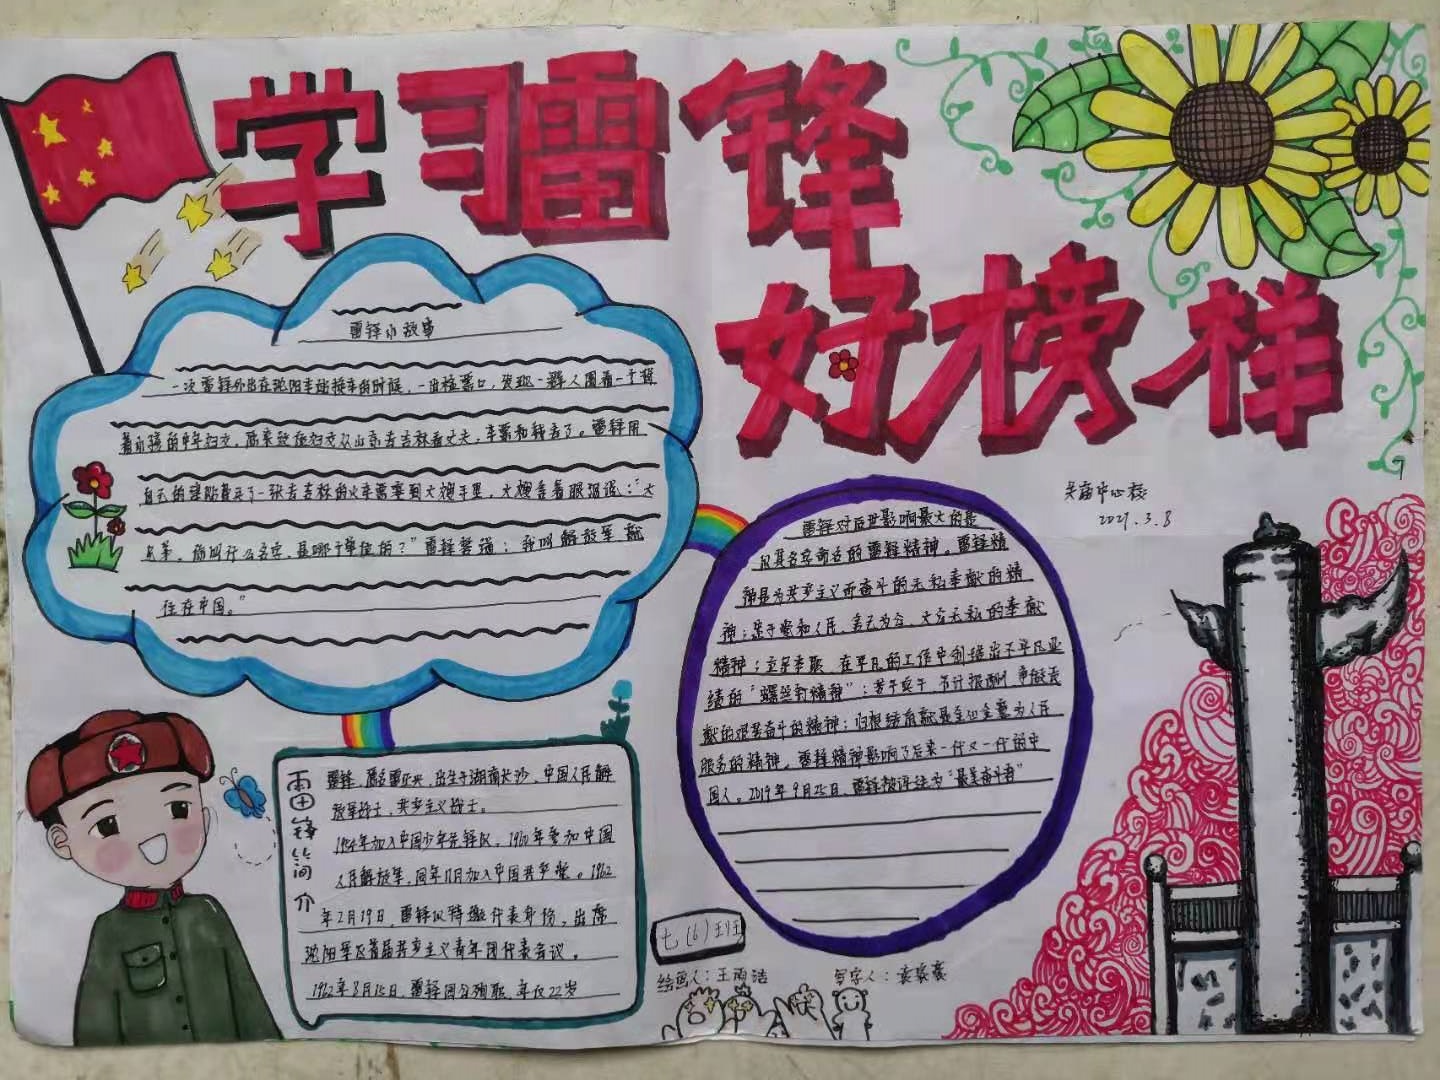 学习雷锋
好榜样
雷锋小故事
一次雷锋外出在沈阳车站换车的时候，一出检票口，发现一群人围着一个背
着小孩的中年妇女，原来这位妇女从山东去吉林看丈夫，车票和钱丢了。雷锋用
自己的津贴费买了一张去吉林的火车票塞到大嫂手里，大嫂含着眼泪说：“大
兄弟，你叫什么名字，是哪个单位的？”雷锋笑道：我叫解放军，就
住在中国。”
雷锋对后世影响最大的是
以其名字命名的雷锋精神。雷锋精
神是为共产主义而奋斗的无私奉献的精
神；忠于党和人民、舍己为公、大公无私的奉献
精神；立足本职、在平凡的工作中创造出不平凡业
绩的“螺丝钉精神”；苦干实干、节计报酬、争做贡
献的艰苦奋斗的精神；归根结底就是全心全意为人民
服务的精神。雷锋精神影响了后来一代又一代的中
国人。2019年9月25日，雷锋被评选为“最美奋斗者”
吴庙中心校
2021.3.8
雷锋简介
雷锋，原名雷正兴，出生于湖南长沙，中国人民解
放军战士，共产主义战士。
1954年加入中国少年先锋队，1960年参加中国
人民解放军，同年11月加入中国共产党。1962
年2月19日，雷锋以特邀代表身份，出席
沈阳军区首届共产主义青年团代表会议。
1962年8月15日，雷锋因公殉职，年仅22岁
七（6）班
绘画人：王雨洁
写字人：袁